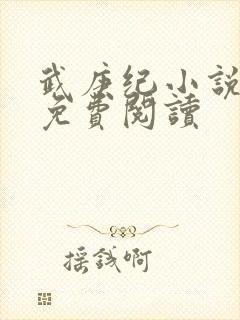 武庚纪小說
免費閱讀
搖錢啊